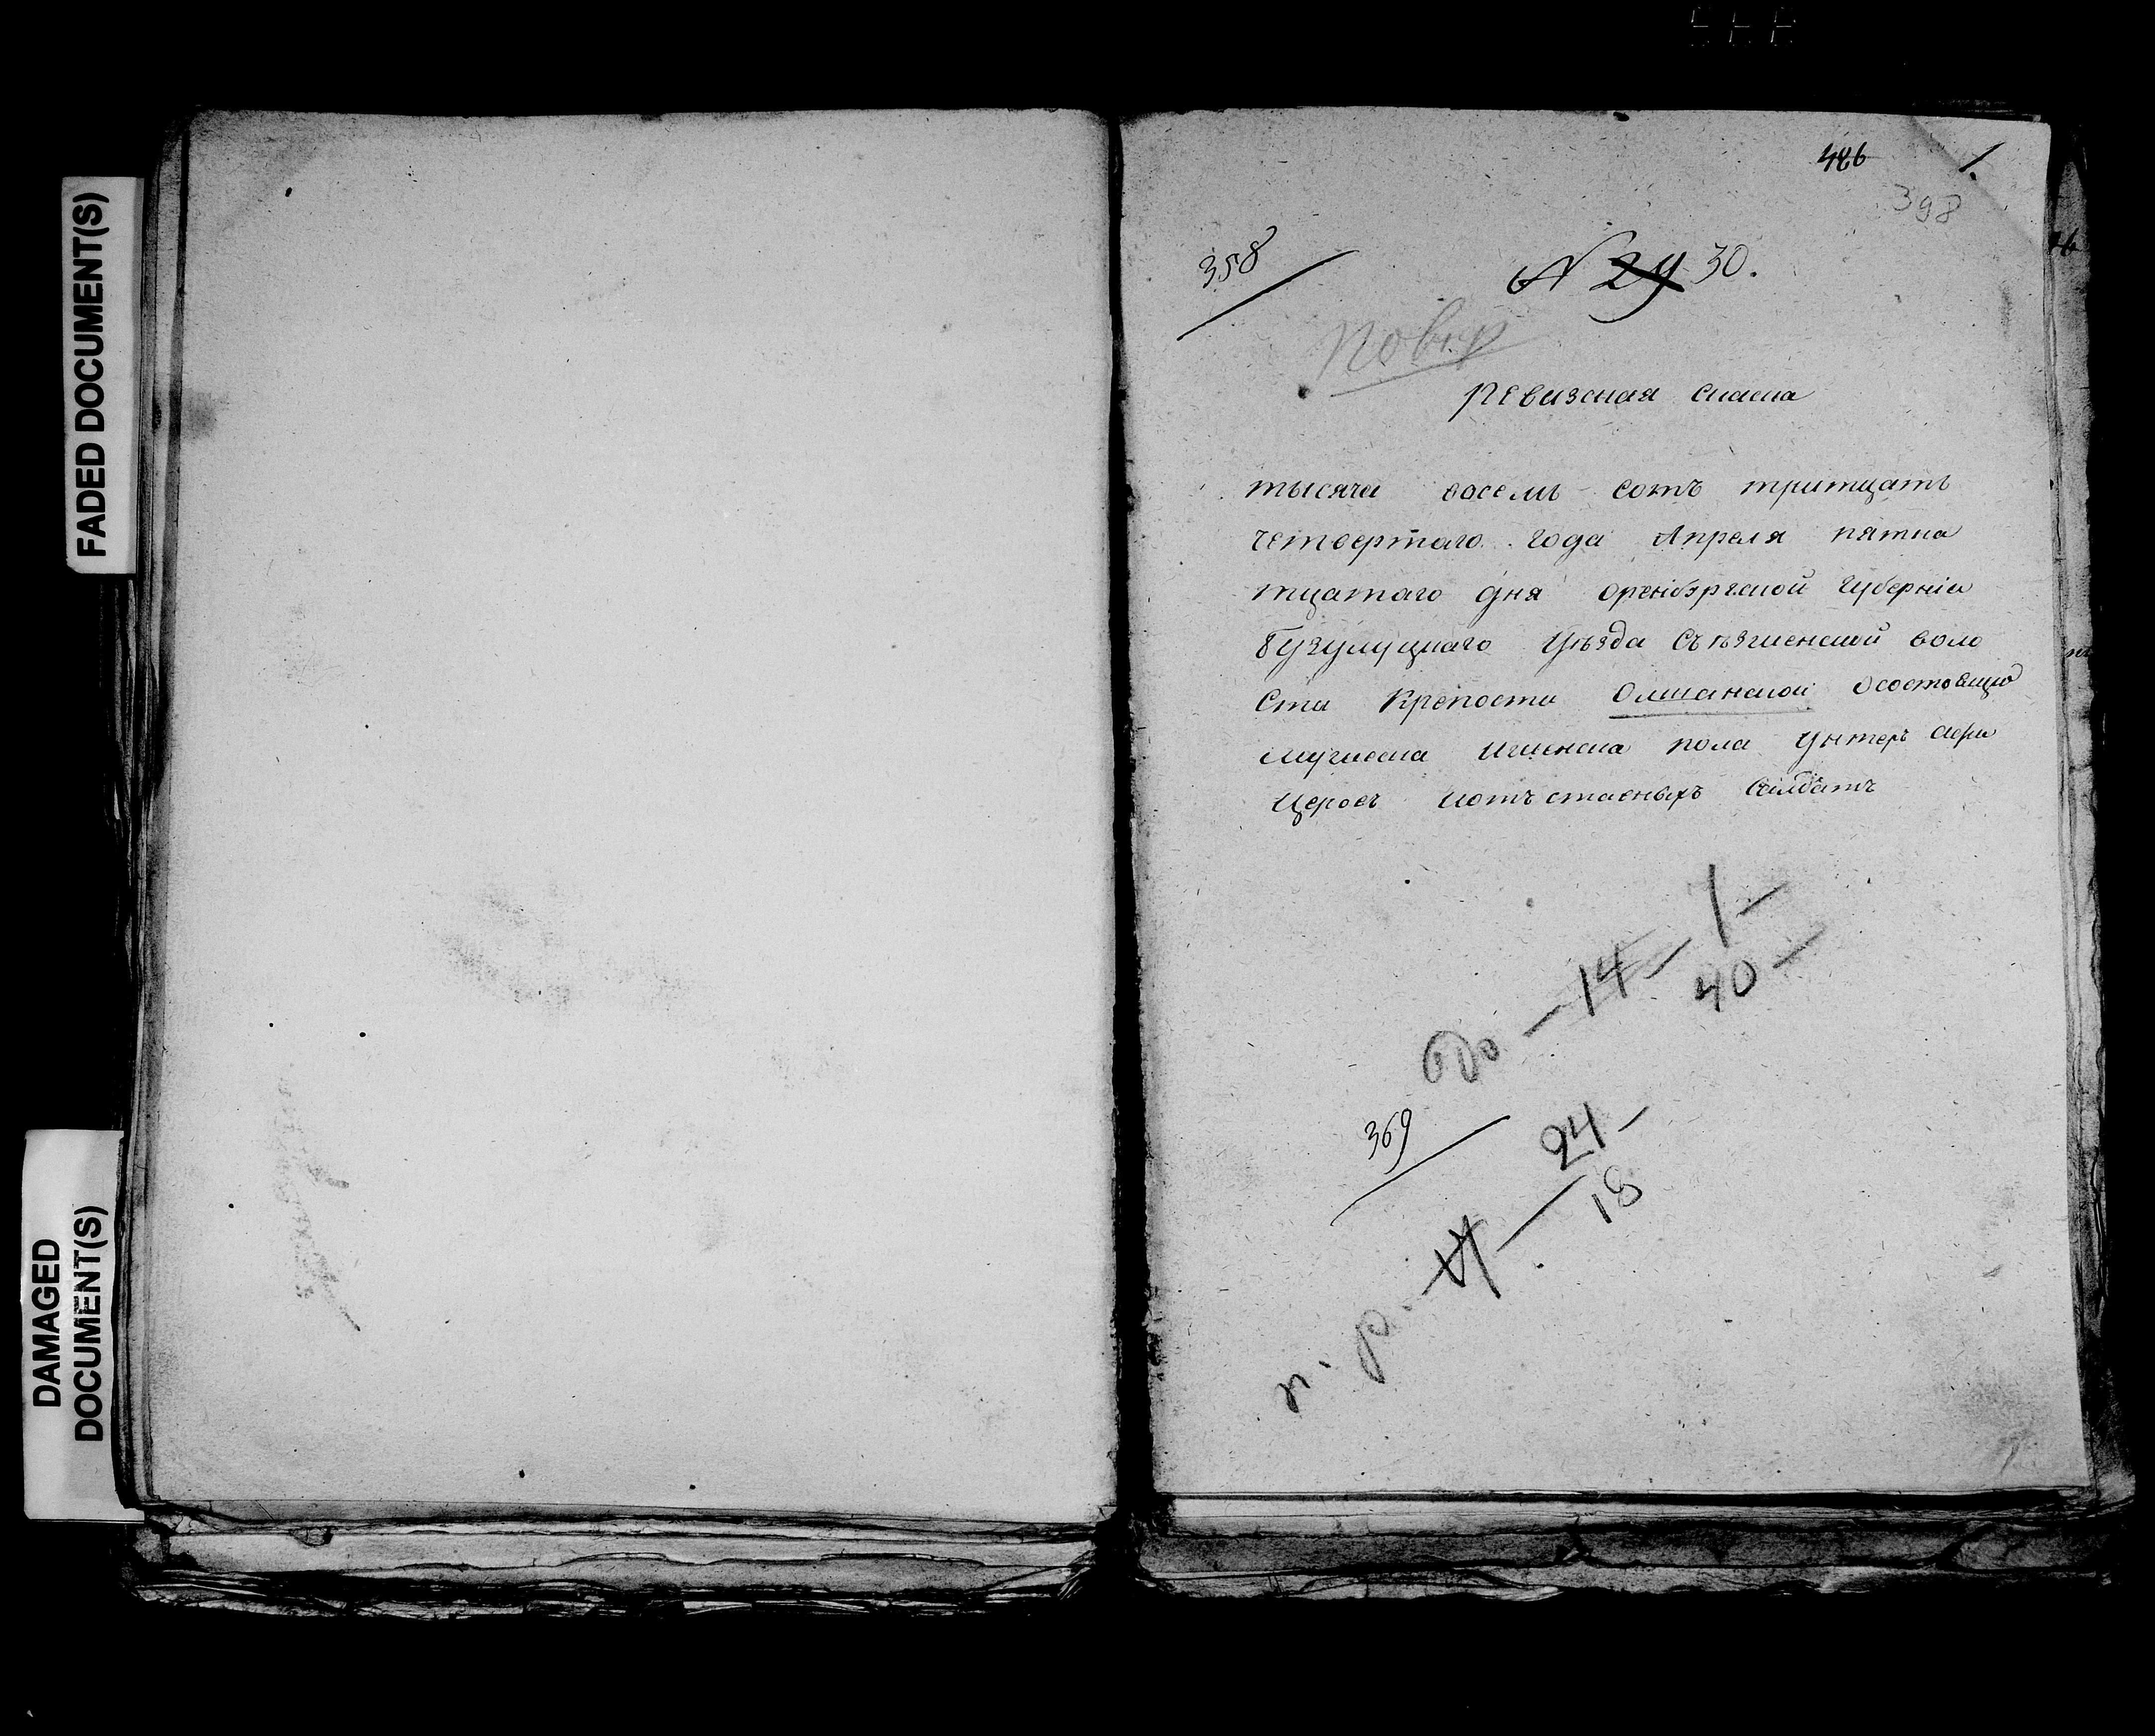 FADED DOCUMENT(S)
DAMAGED
DOCUMENT(S)
486 1.
398
358
N 29 30.
повѣр
ревизская скаска
тысяча восемь сотъ тритцать
четвертаго года Апреля пятна
тцатаго дня оренбэргской губерніи
бузулуцкаго Уѣзда Съѣзженской воло
сти Крепости Олшанской осостоящихъ
мужеска ищенска пола Унтеръ афи
церовъ иотъставныхъ Салдатъ
14 1
40
369
24
18
п. р. 17